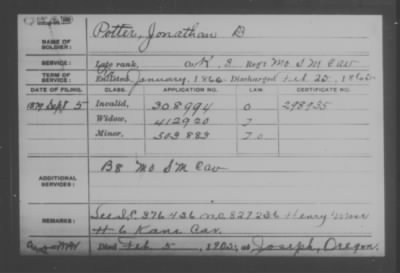 Potter, Jonathan D
NAME OF SOLDIER:
SERVICE: Late rank, Co. K, 8 Reg't Mo S M Cav
TERM OF SERVICE: Enlisted January, 1862 Discharged Feb 25, 1865
DATE OF FILING. CLASS. APPLICATION NO. LAW. CERTIFICATE NO.
1879 Sept 5 Invalid, 308994 298935
Widow, 412920
Minor, 503883
ADDITIONAL SERVICES: B 8 Mo S M Cav
REMARKS: See 376436 827236 Henry
H 6 Kans Cav.
Died Feb 5, 1902, at Joseph, Oregon.